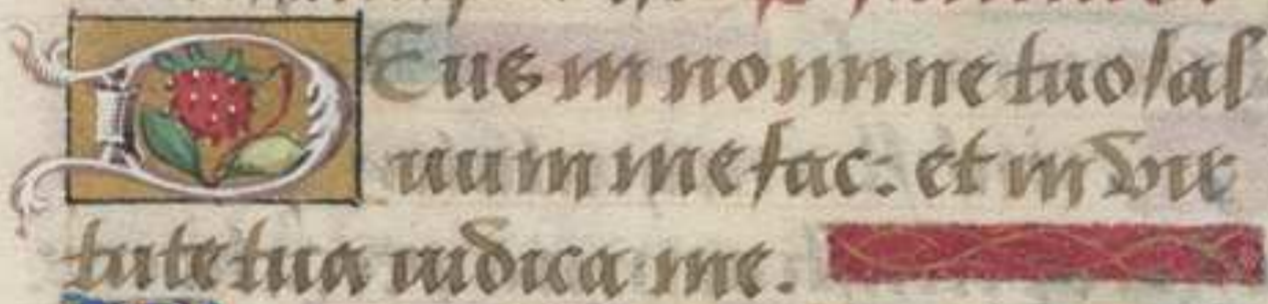 DEus in nomine tuo sal
uum me fac: et in vir
tute tua iudica me.